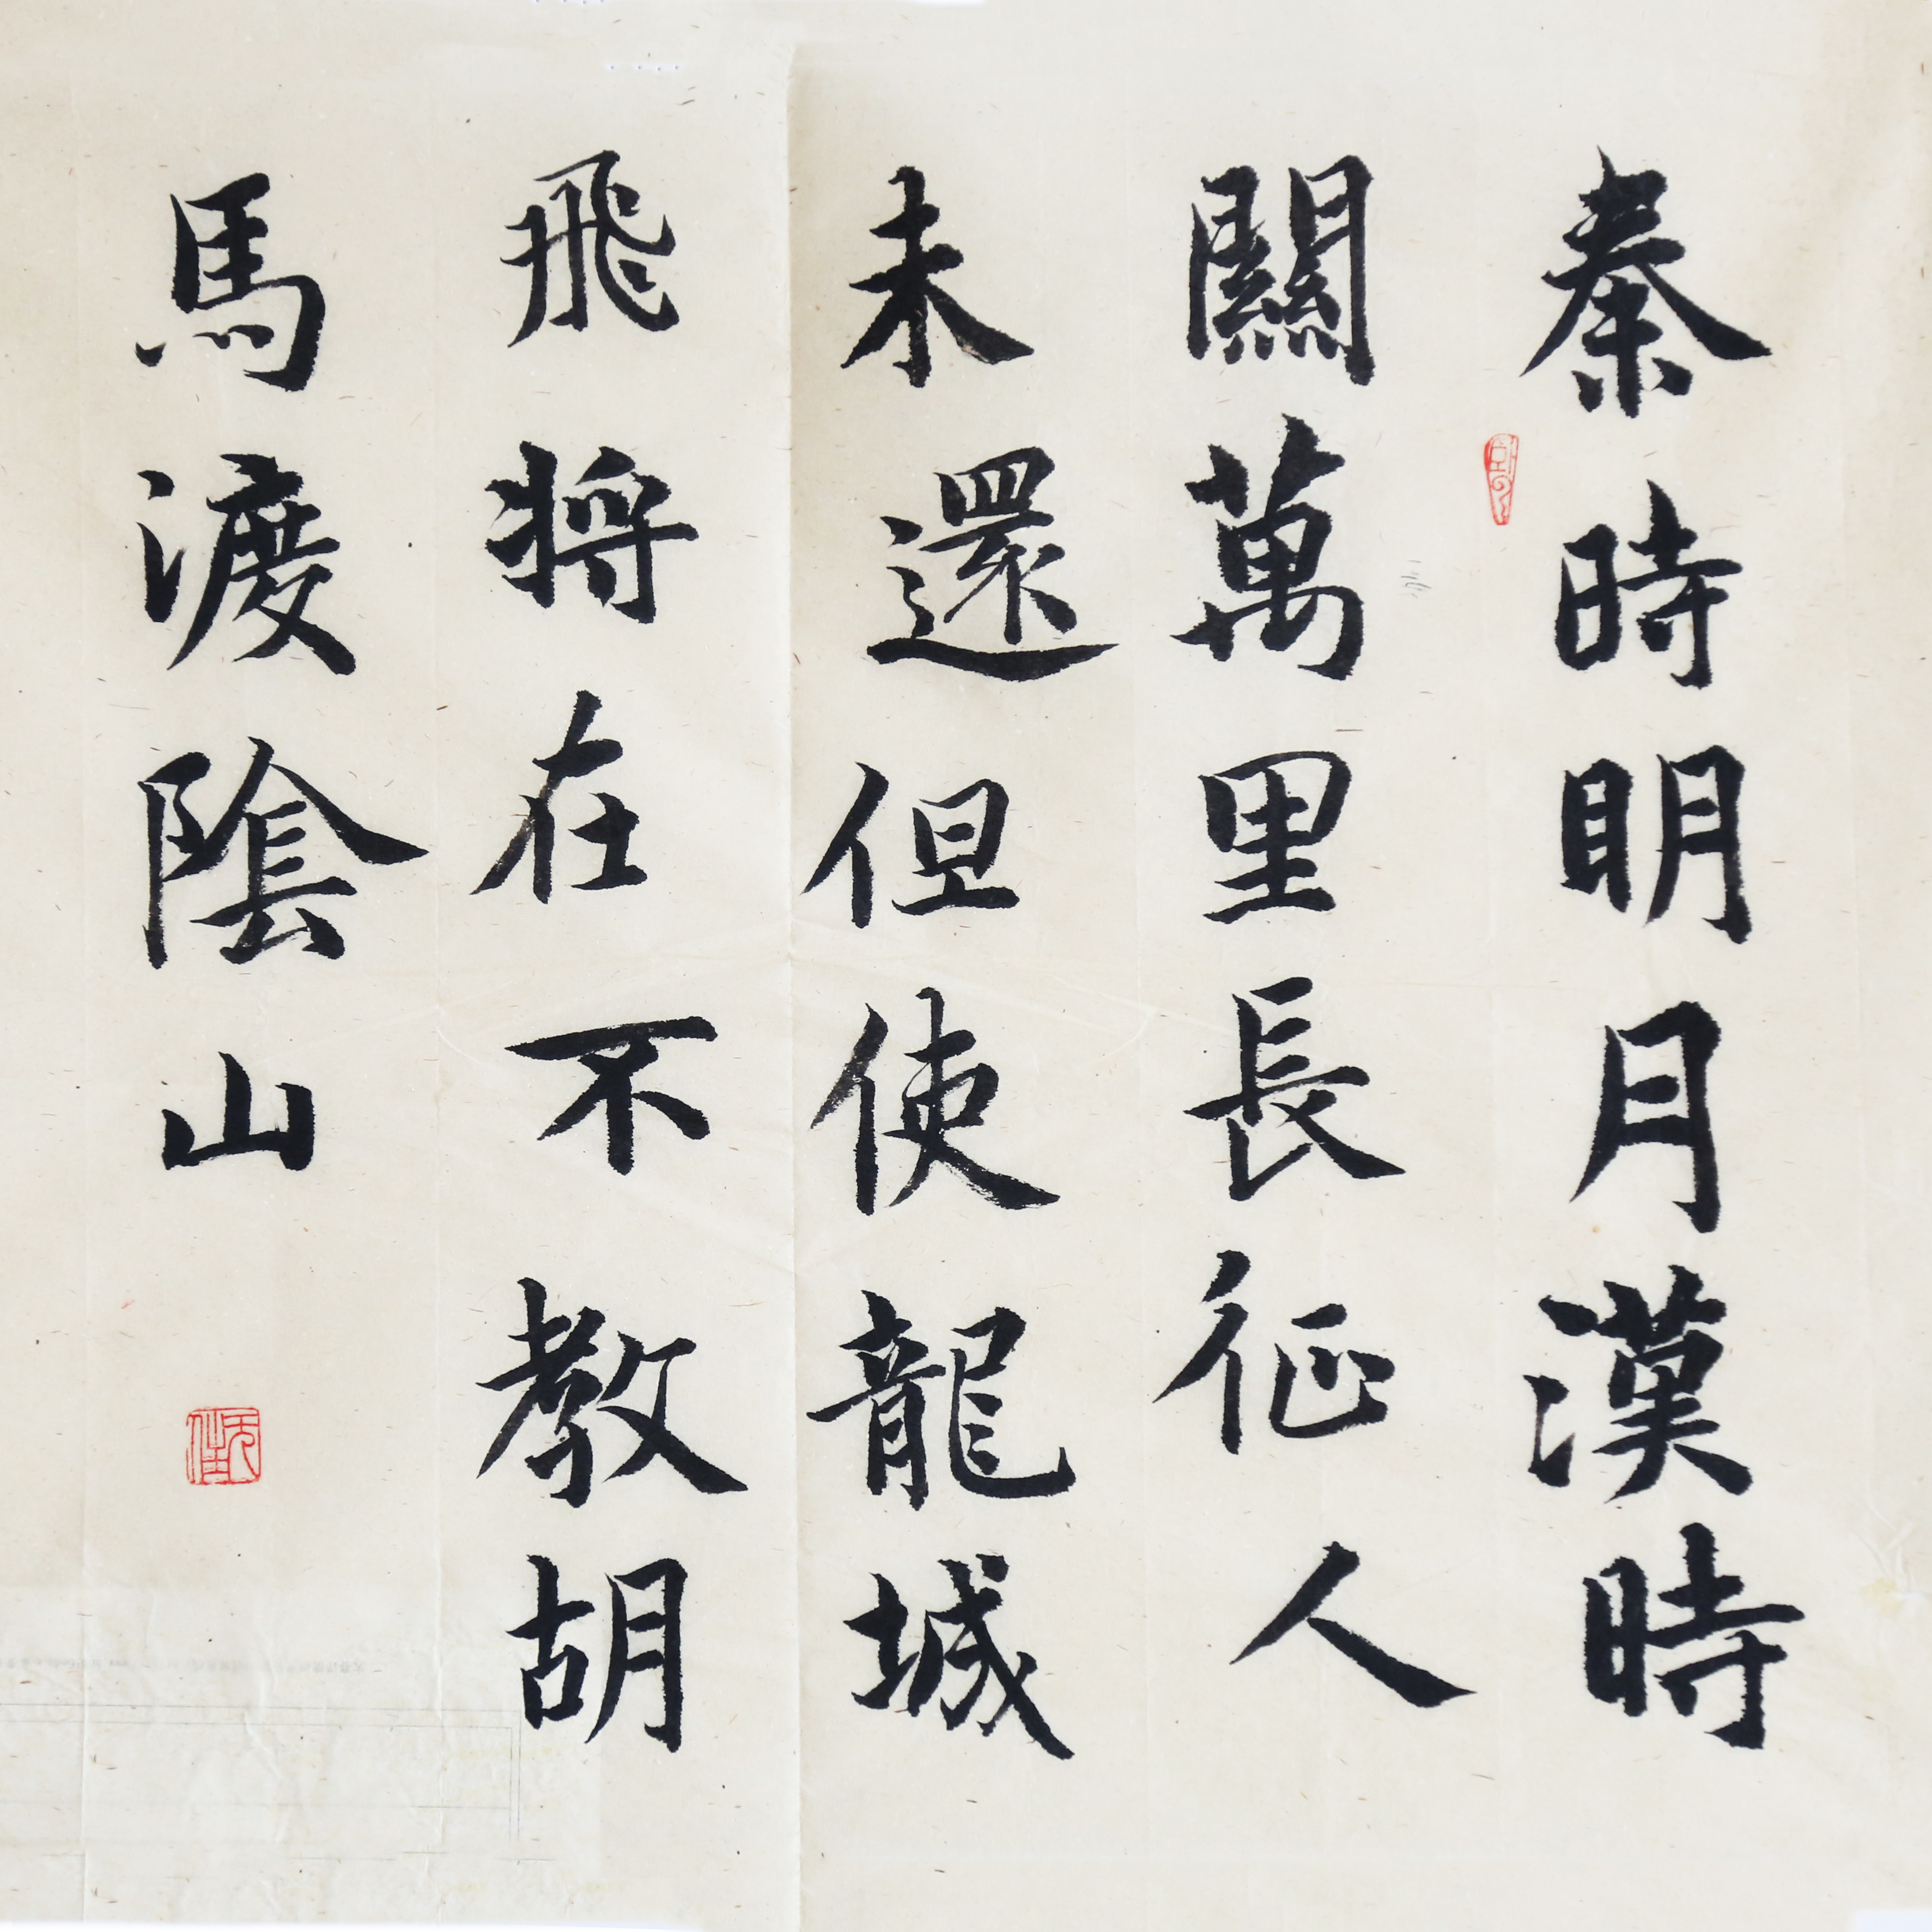 秦時明月漢時
關萬里長征人
未還但使龍城
飛將在不教胡
馬渡陰山